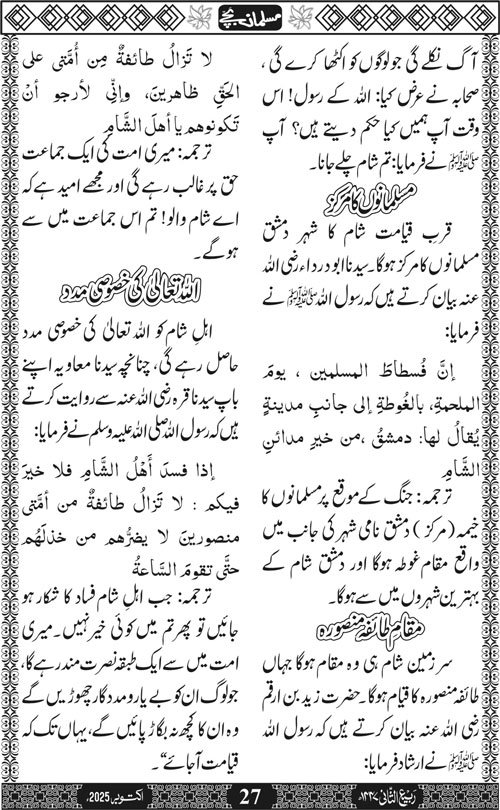 مسلمان بچے
آگ نکلے گی جو لوگوں کو اکٹھا کرے گی،
صحابہ نے عرض کیا: اللہ کے رسول! اس
وقت آپ ہمیں کیا حکم دیتے ہیں؟ آپ
ﷺ نے فرمایا: تم شام چلے جانا۔
مسلمانوں کا مرکز
قرب قیامت شام کا شہر دمشق
مسلمانوں کا مرکز ہوگا۔ سیدنا ابو درداء رضی اللہ
عنہ بیان کرتے ہیں کہ رسول اللہ ﷺ نے
فرمایا:
إنَّ فُسطاطَ المسلمين ، يومَ
الملحمةِ، بالغُوطةِ إلى جانبِ مدينةٍ
يُقالُ لها: دمشقُ ،من خيرِ مدائنِ
الشَّامِ
ترجمہ: جنگ کے موقع پر مسلمانوں کا
خیمہ (مرکز) دمشق نامی شہر کی جانب میں
واقع مقام غوطہ ہوگا اور دمشق شام کے
بہترین شہروں میں سے ہوگا۔
مقام طائفہ منصورہ
سرزمین شام ہی وہ مقام ہوگا جہاں
طائفہ منصورہ کا قیام ہوگا۔ حضرت زید بن ارقم
رضی اللہ عنہ بیان کرتے ہیں کہ رسول اللہ
ﷺ نے ارشاد فرمایا:
لا تَزالُ طائفةٌ مِن أُمَّتي على
الحَقِّ ظاهرينَ، وإنِّي لأرجو أنْ
تَكونوهم يا أهلَ الشَّامِ
ترجمہ: میری امت کی ایک جماعت
حق پر غالب رہے گی اور مجھے امید ہے کہ
اے شام والو! تم اس جماعت میں سے
ہوگے۔
اللہ تعالیٰ کی خصوصی مدد
اہل شام کو اللہ تعالیٰ کی خصوصی مدد
حاصل رہے گی، چنانچہ سیدنا معاویہ اپنے
باپ سیدنا قرہ رضی اللہ عنہ سے روایت کرتے
ہیں کہ رسول اللہ صلی اللہ علیہ وسلم نے فرمایا:
إذا فسدَ أَهْلُ الشَّامِ فلا خيرَ
فيكم : لا تَزالُ طائفةٌ من أمَّتي
منصورينَ لا يضرُّهم من خذلَهُم
حتَّى تقومَ السَّاعةُ
ترجمہ: جب اہل شام فساد کا شکار ہو
جائیں تو پھر تم میں کوئی خیر نہیں۔ میری
امت میں سے ایک طبقہ نصرت مند رہے گا،
جو لوگ ان کو بے یار و مددگار چھوڑیں گے
وہ ان کا کچھ نہ بگاڑ پائیں گے، یہاں تک کہ
قیامت آجائے“۔
ربیع الثانی ۱۴۴۷ھ
27
اکتوبر 2025ء